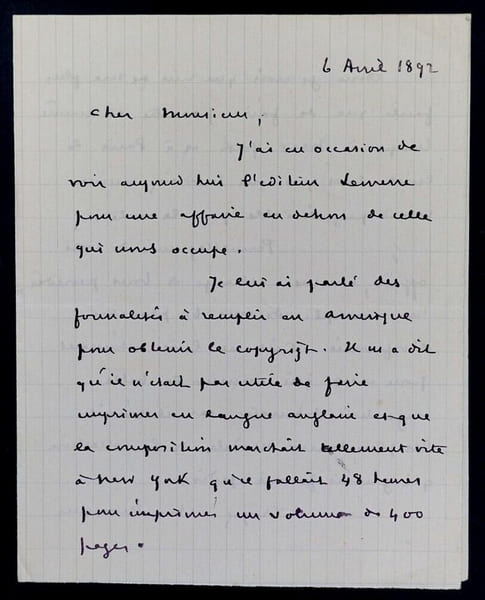 6 Avril 1892
Cher Monsieur,
J'ai eu occasion de
voir aujourd'hui l'éditeur Lemerre
pour une affaire en dehors de celle
qui nous occupe.
Je lui ai parlé des
formalités à remplir en Amérique
pour obtenir le copyright. Il m'a dit
qu'il n'était pas utile de faire
imprimer en langue anglaise et que
la composition marchait tellement vite
à New York qu'il fallait 48 heures
pour imprimer un volume de 400
pages.